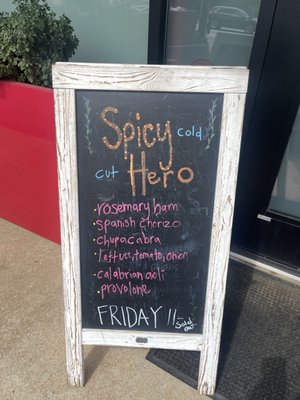 Spicy cold
cut Hero
• rosemary ham
• spanish chorizo
• chupacabra
• lettuce, tomato, onion
• calabrian aoli
• provolone
FRIDAY 11-
Sold out